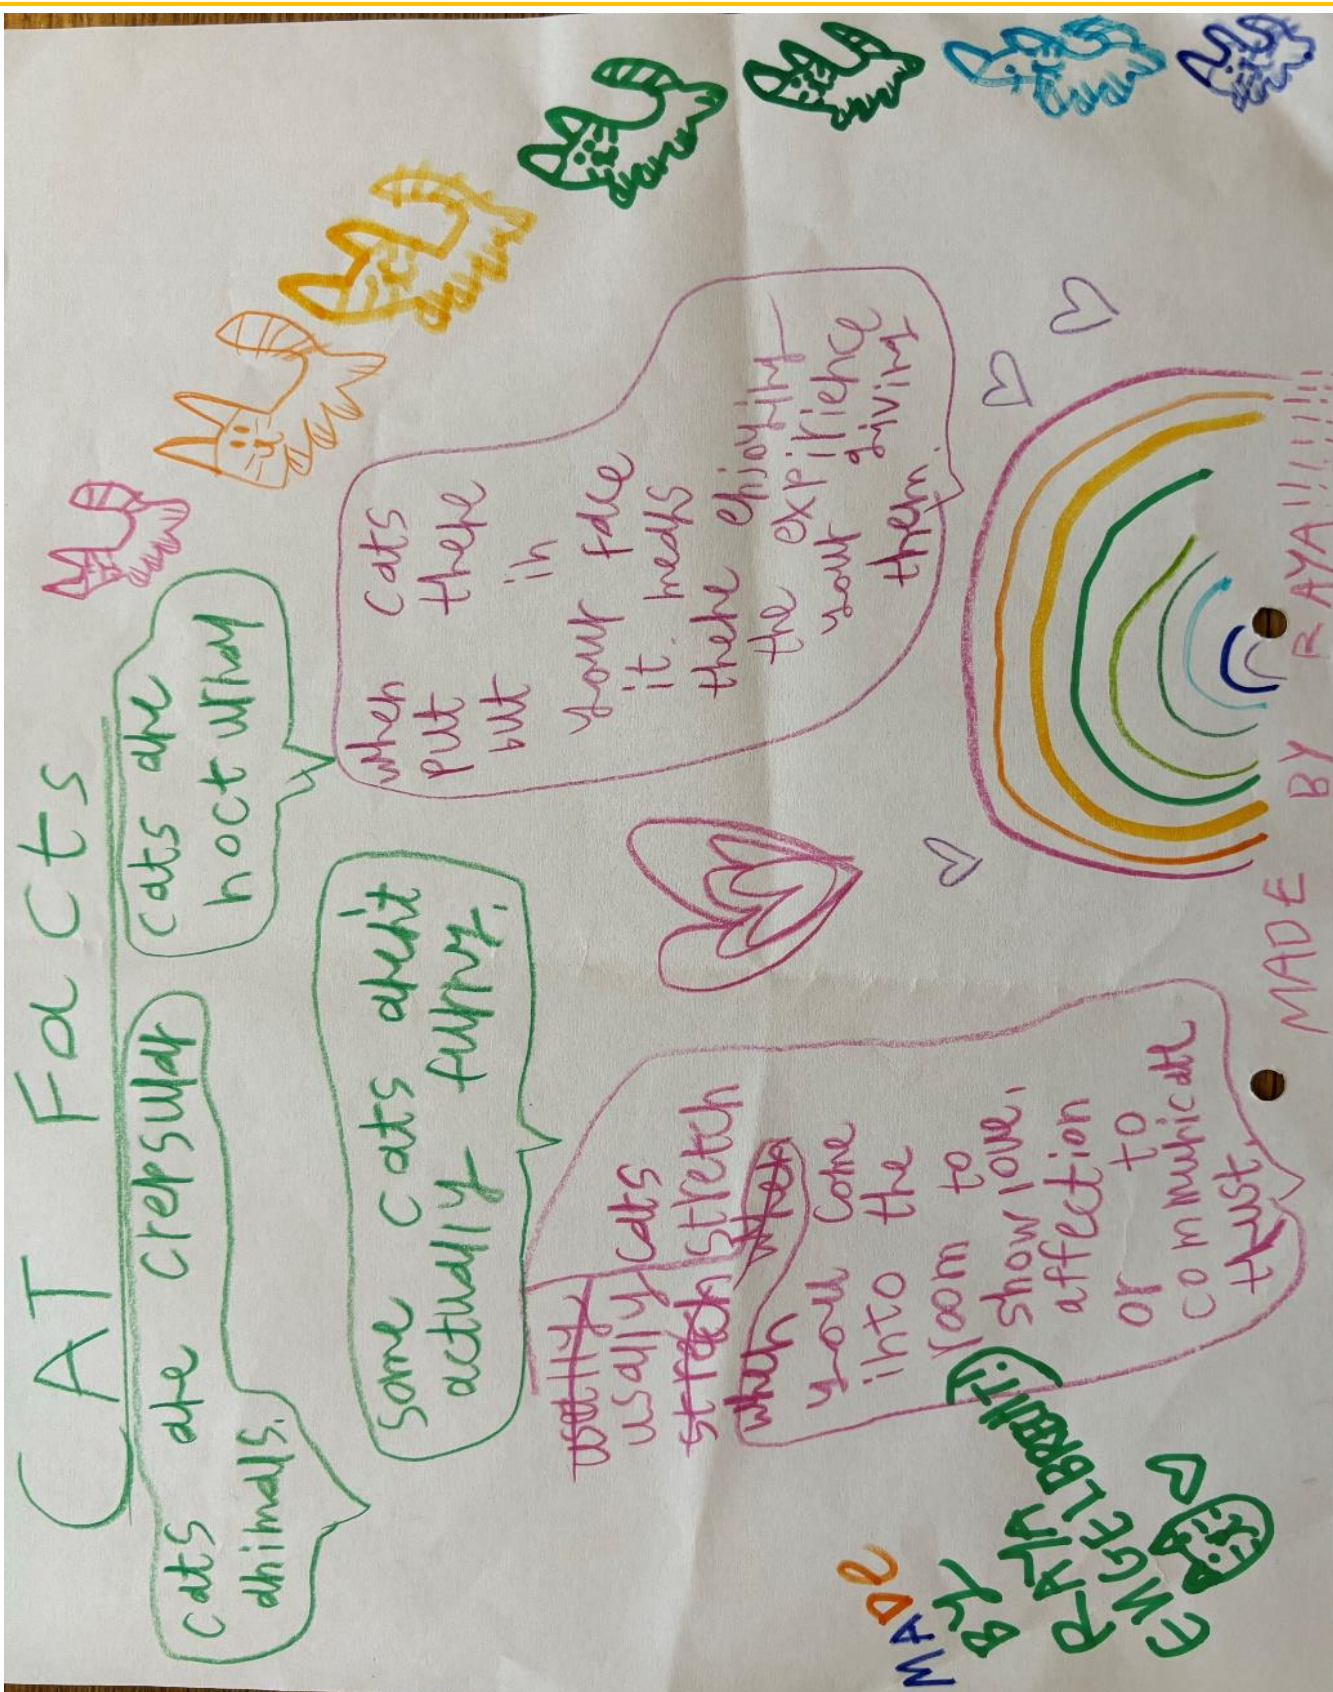 CAT Facts
cats are crepsular
animals.
cats are
nocturnay
some cats aren't
actually furry.
usully
usally cats
strech stretch
when when
you come
into the
room to
show love,
affection
or to
communicate
trust.
when cats
put there
but in
your face
it means
there enjoying
the expirience
your giving
them.
MADE
BY
RAYA
ENGELBRECHT!
MADE BY RAYA!!!!!!!